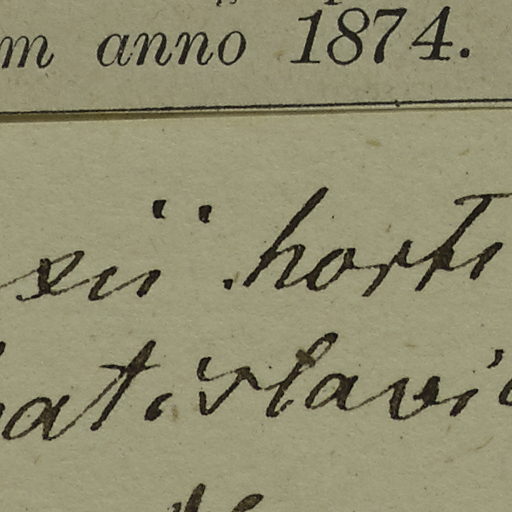 m anno 1874.
xii horti
atislavi